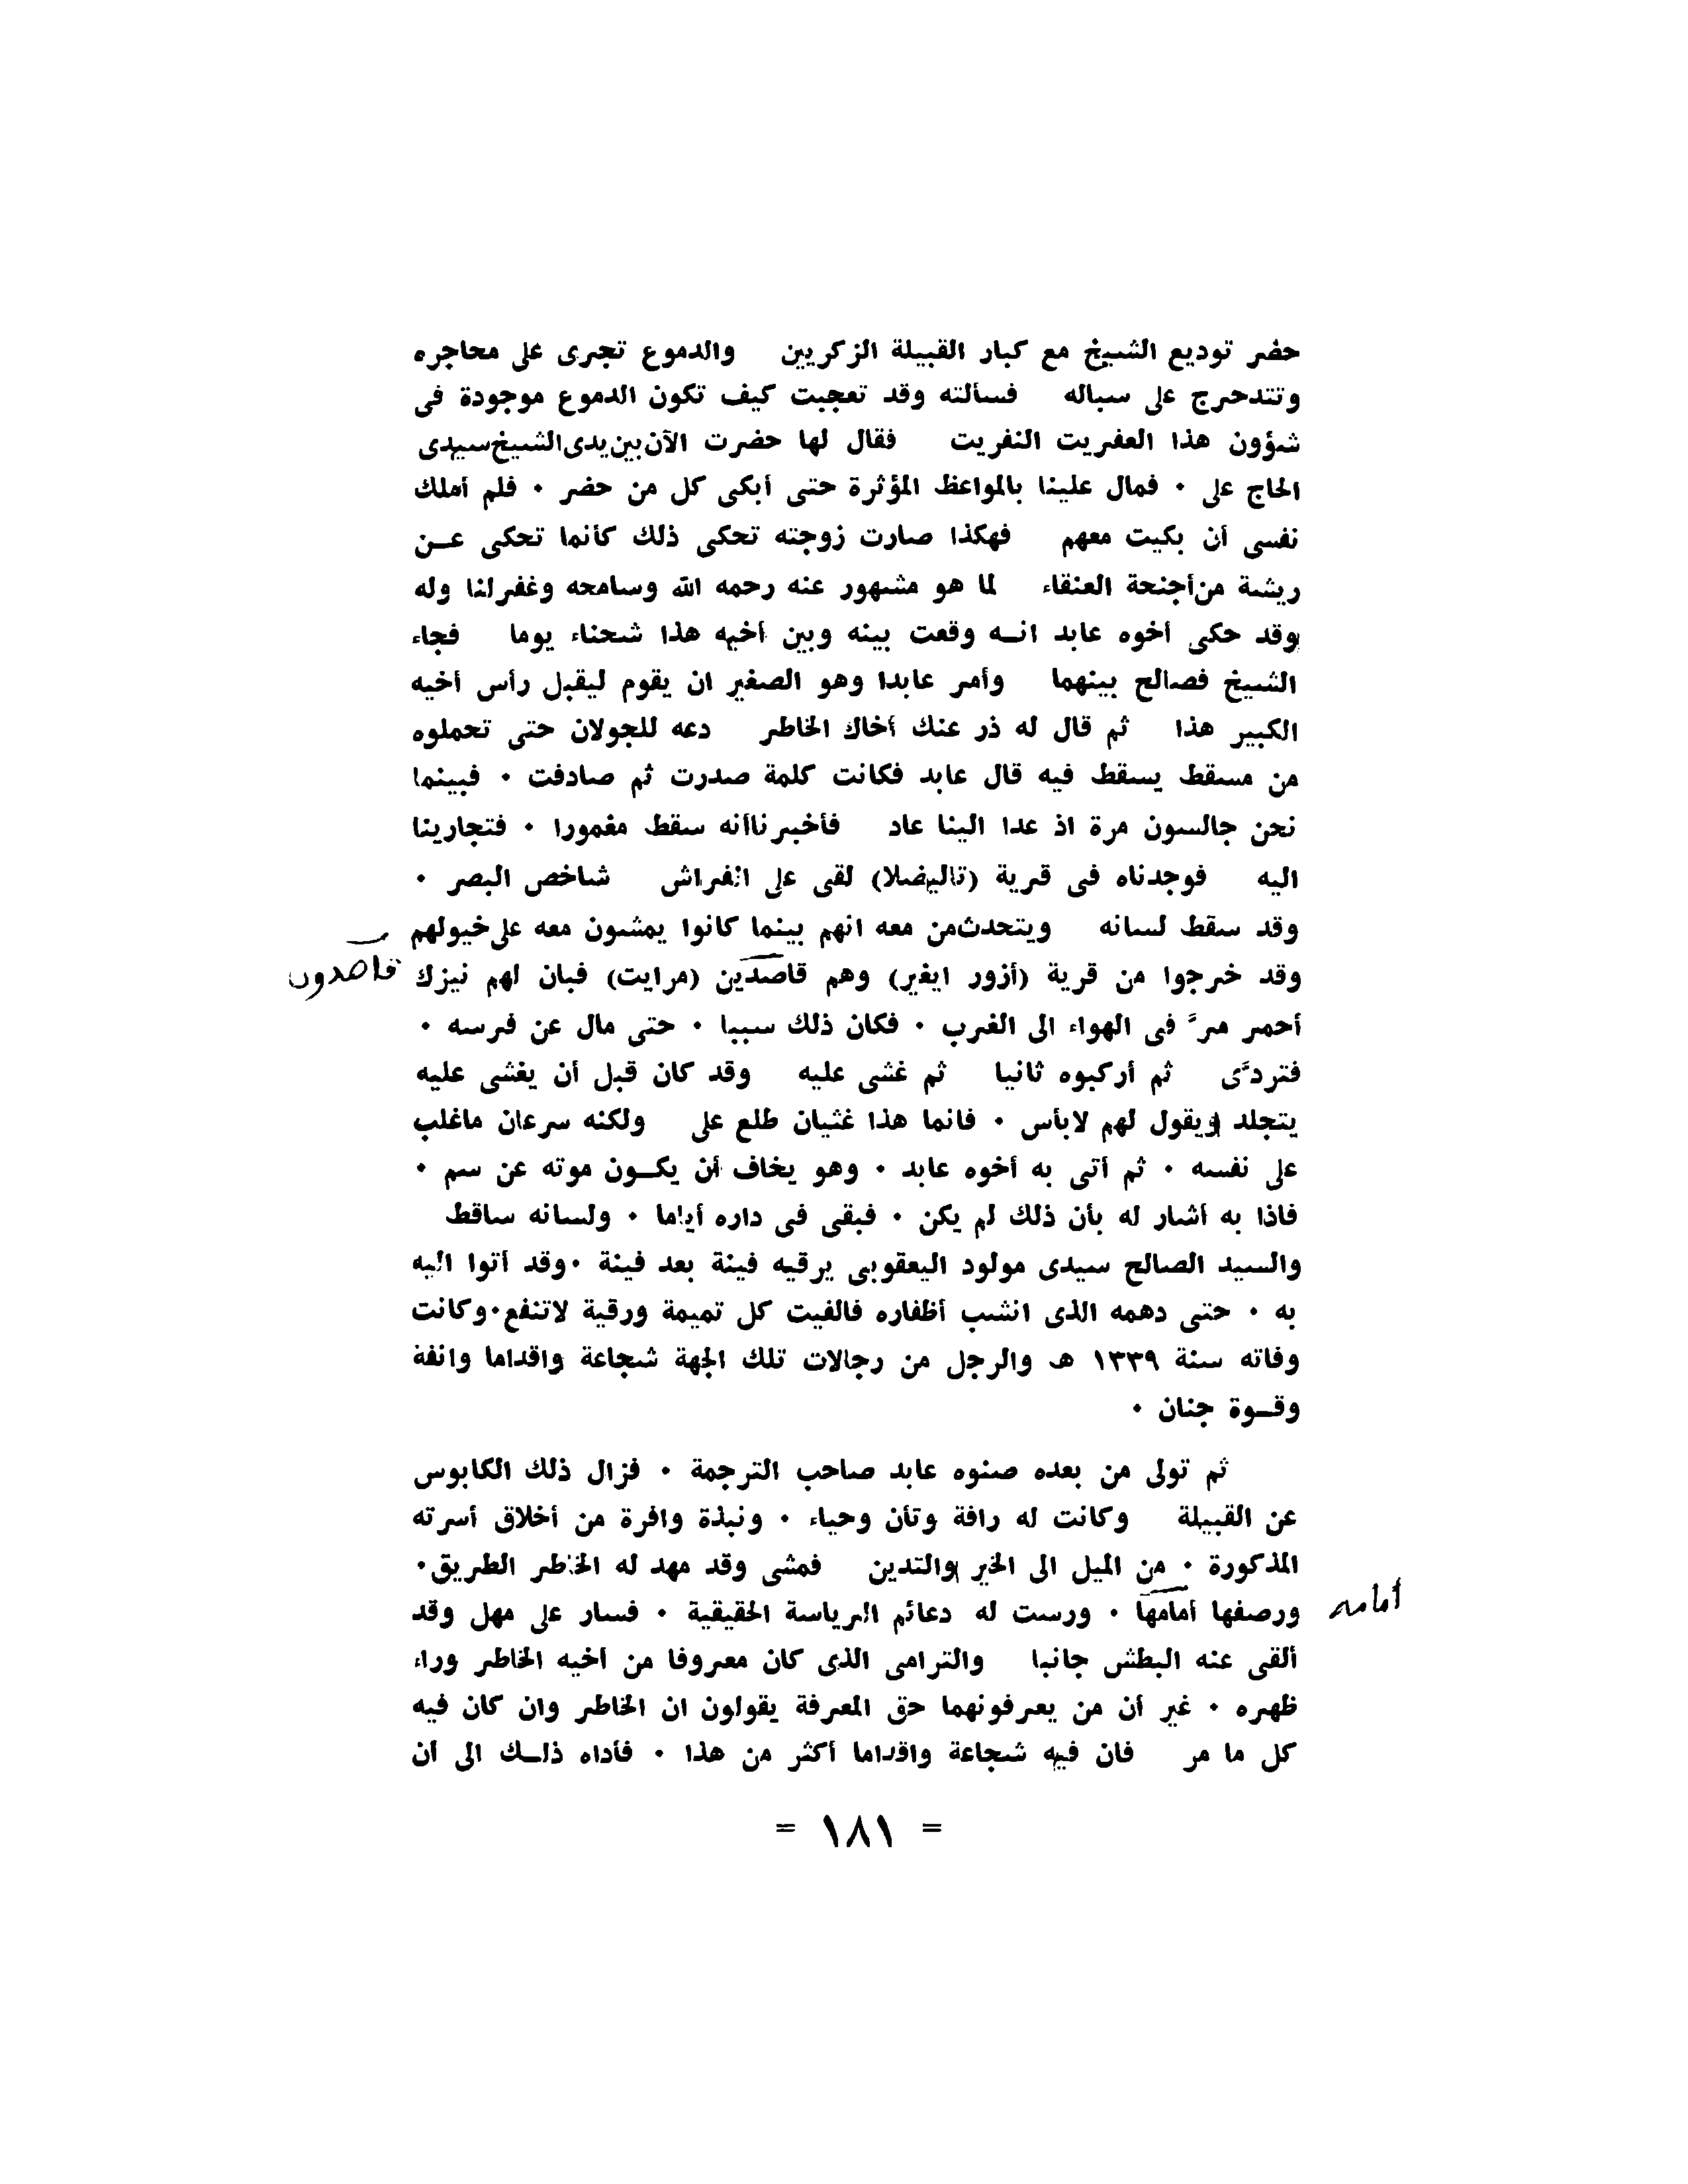 حضر توديع الشيخ مع كبار القبيلة الزكريين والدموع تجرى على محاجره
وتتدحرج على سباله فسألته وقد تعجبت كيف تكون الدموع موجودة فى
شؤون هذا العفريت النفريت فقال لها حضرت الآن بين يدى الشيخ سيدى
الحاج على ٠ فمال علينا بالمواعظ المؤثرة حتى أبكى كل من حضر ٠ فلم أملك
نفسى أن بكيت معهم فهكذا صارت زوجته تحكى ذلك كأنما تحكى عـن
ريشة من أجنحة العنقاء لما هو مشهور عنه رحمه الله وسامحه وغفر لنا وله
وقد حكى أخوه عابد انـه وقعت بينه وبين أخيه هذا شحناء يوما فجاء
الشيخ فصالح بينهما وأمر عابدا وهو الصغير ان يقوم ليقبل رأس أخيه
الكبير هذا ثم قال له ذر عنك أخاك الخاطر دعه للجولان حتى تحملوه
من مسقط يسقط فيه قال عابد فكانت كلمة صدرت ثم صادفت ٠ فبينما
نحن جالسون مرة اذ عدا الينا عاد فأخبرنا أنه سقط مغمورا ٠ فتجارينا
اليه فوجدناه فى قرية (تاليضلا) لقى على الفراش شاخص البصر ٠
وقد سقط لسانه ويتحدث من معه انهم بينما كانوا يمشون معه على خيولهم
وقد خرجوا من قرية (أزور ايغير) وهم قاصدين (مرايت) فبان لهم نيزك
قاصدون
أحمر مرَّ فى الهواء الى الغرب ٠ فكان ذلك سببا ٠ حتى مال عن فرسه ٠
فتردَّى ثم أركبوه ثانيا ثم غشى عليه وقد كان قبل أن يغشى عليه
يتجلد ويقول لهم لابأس ٠ فانما هذا غثيان طلع على ولكنه سرعان ماغلب
على نفسه ٠ ثم أتى به أخوه عابد ٠ وهو يخاف أن يكـون موته عن سم ٠
فاذا به أشار له بأن ذلك لم يكن ٠ فبقى فى داره أياما ٠ ولسانه ساقط
والسيد الصالح سيدى مولود اليعقوبى يرقيه فينة بعد فينة ٠ وقد أتوا اليه
به ٠ حتى دهمه الذى انشب أظفاره فالفيت كل تميمة ورقية لاتنفع ٠ وكانت
وفاته سنة ١٣٣٩ هـ والرجل من رجالات تلك الجهة شجاعة واقداما وانفة
وقـوة جنان ٠
ثم تولى من بعده صنوه عابد صاحب الترجمة ٠ فزال ذلك الكابوس
عن القبيلة وكانت له رافة وتأن وحياء ٠ ونبذة وافرة من أخلاق أسرته
المذكورة ٠ من الميل الى الخير والتدين فمشى وقد مهد له الخاطر الطريق ٠
ورصفها أمامها ٠ ورست له دعائم الرياسة الحقيقية ٠ فسار على مهل وقد
أمامه
ألقى عنه البطش جانبا والترامى الذى كان معروفا من أخيه الخاطر وراء
ظهره ٠ غير أن من يعرفونهما حق المعرفة يقولون ان الخاطر وان كان فيه
كل ما مر فان فيه شجاعة واقداما أكثر من هذا ٠ فأداه ذلـك الى أن
= ١٨١ =